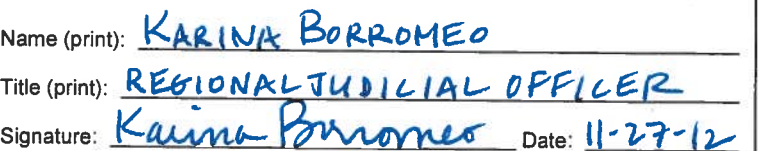 Name (print): KARINA BORROMEO
Title (print): REGIONAL JUDICIAL OFFICER
Signature: Karina Borromeo Date: 11-27-12